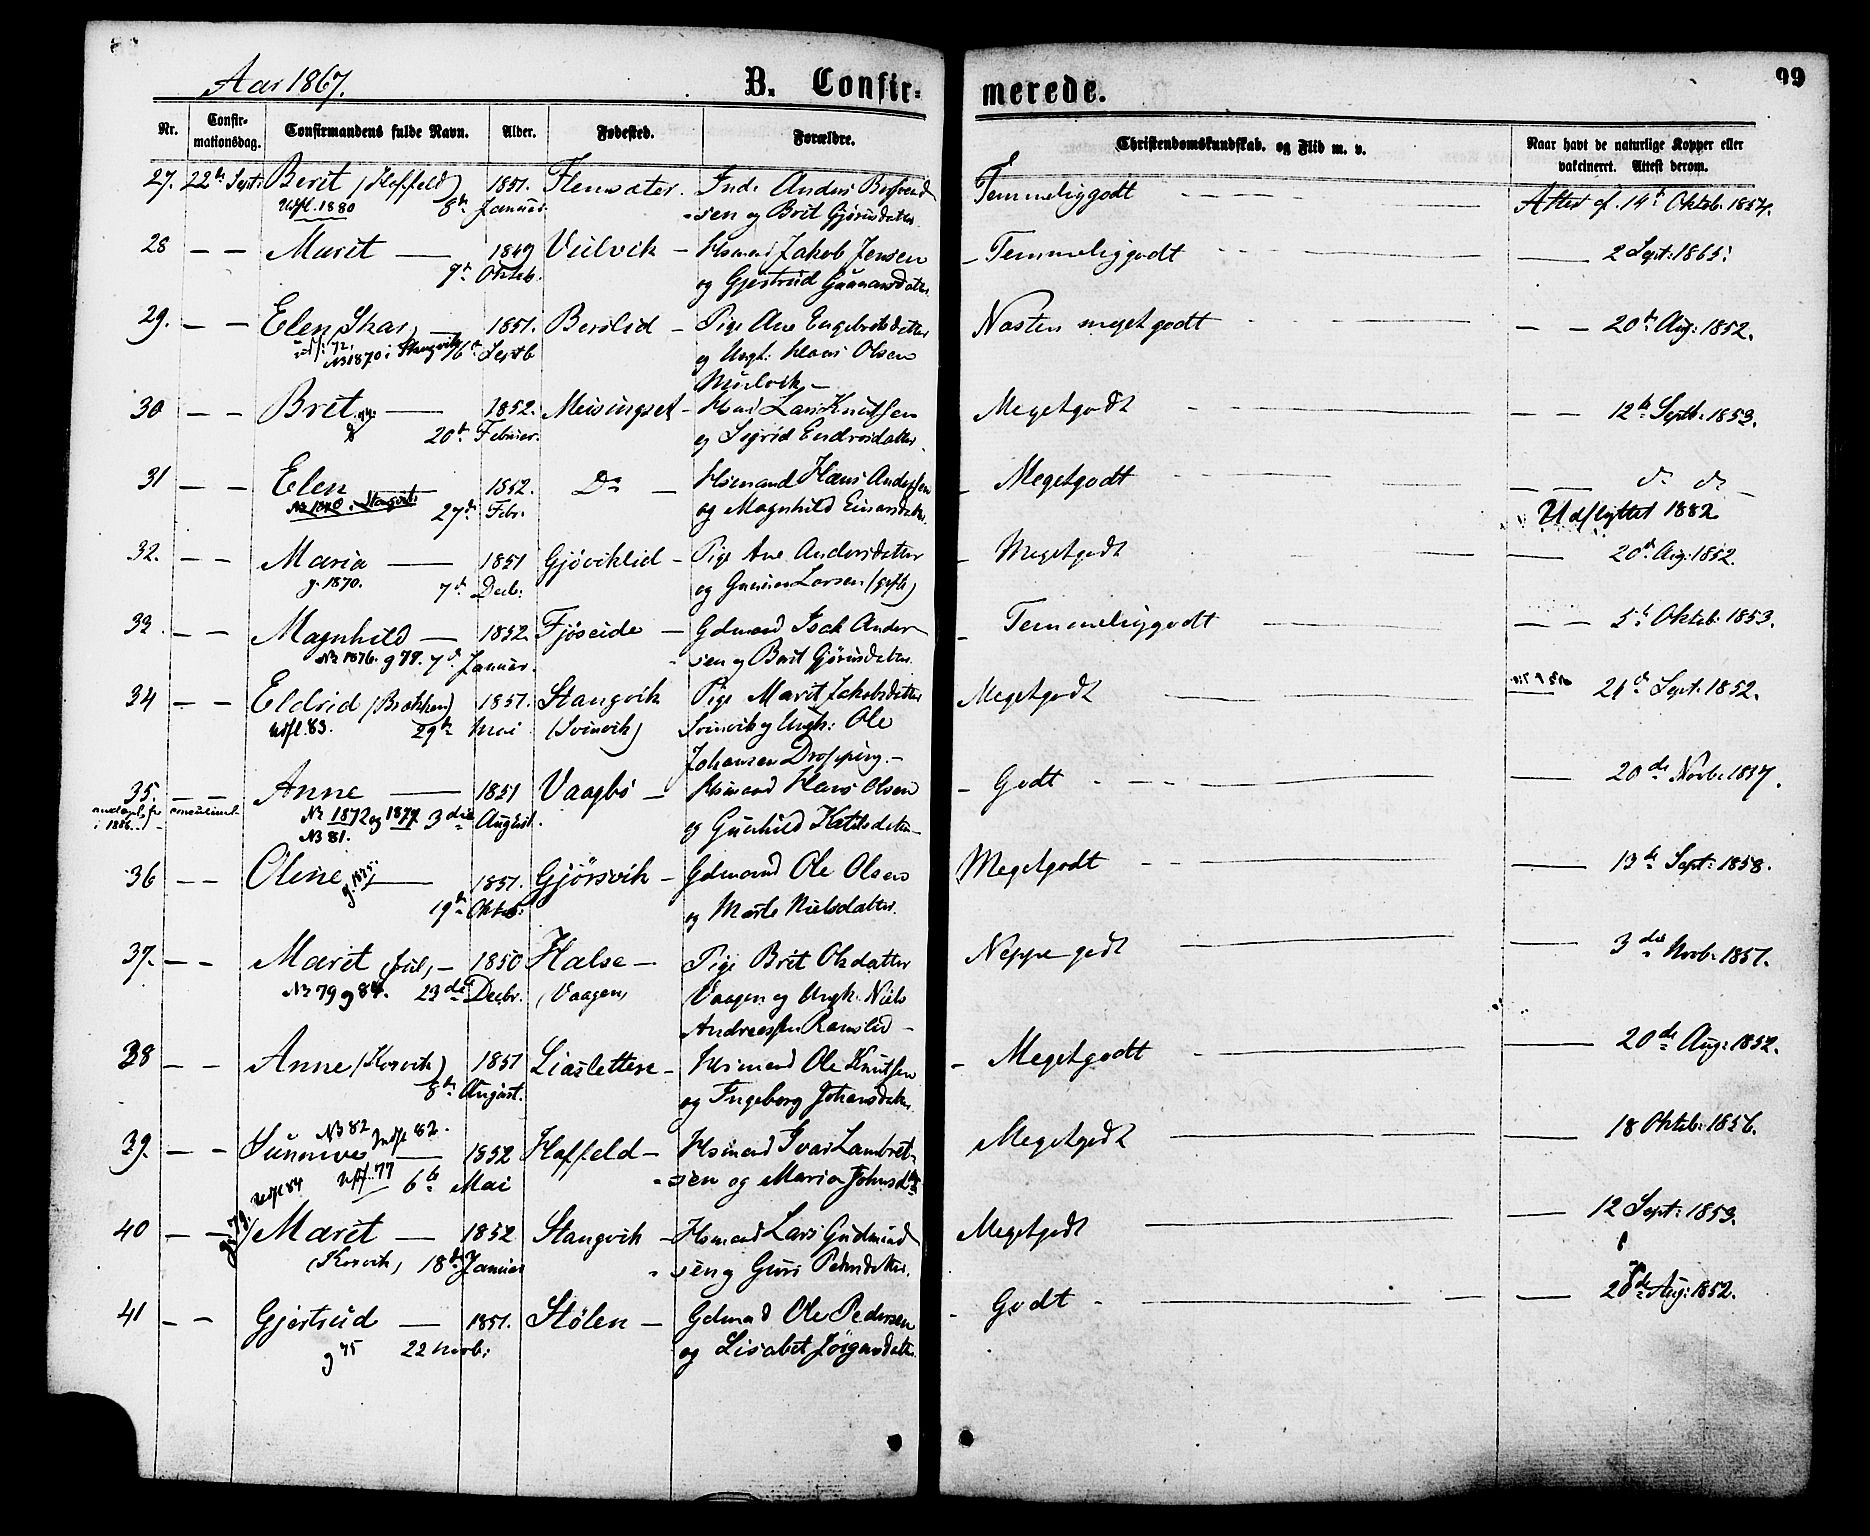 Aar 1867.
B. Confirmerede.
99
Nr.
Confirmationsdag.
Confirmandens fulde Navn.
Alder.
Fødested.
Forældre.
Christendomskundskab. og Flid m. v.
Naar havt de naturlige Kopper eller vakcineret. Attest derom.
27. 22de Sept: Berit (Hoffeld) 1851. Inds Anders Temmeliggodt Attest af 14de Oktob. 1854.
Udfl. 1880 8de Januar sen og Brit Gjørusdatter
28 — — Marit — 1849 Veilvik — Hsmand Jakob Jensen — Temmeliggodt — 2 Sept: 1865:
9de Oktob. og Gjertrud Gunnarsdatter
29. — — Elen — 1851. Berslid — Pige Ane Engebretsdatter Næsten megetgodt — — 20de Aug: 1852.
72, No 1870 i Stangvik 16de Septb og Ungk: Hans Olsen
30 — — Brit — 1852. Meisingset — Hsmd Lars Knutsen Megetgodt — — 12te Septb. 1853.
20de Februar. og Sigrid Endresdatter
31 — — Elen 1852. Do — Hsmand Hans Andersen — Megetgodt — — do do —
No 1870. Stangvik 27de Febr. og Magnhild Einarsdatter Udflyttet 1882
32. — — Maria — 1851 Gjøviklid — Pige Ane Andersdatter — Megetgodt — 20de Aug: 1852.
g. 1870. 7de Decb: og Gunnar Larsen (gift)
33. — — Magnhild — 1852. Fjøseide — Gdmand Isak Ander — Temmeliggodt — — 5te Oktob. 1853.
No 1876. g 77. 7de Januar. sen og Berit Gjørusdatter
34 — — Eldrid (Brækken) 1851. Stangvik Pige Marit Jakobsdatter Megetgodt — 21de Sept. 1852.
Udfl. 83. 29de Mai (Svinvik) Svinvik og Ungk: Ole
Johansen Dropping. —
35. — — Anne — 1851 Vaagbø — Hsmand Hans Olsen — Godt — 20de Novb. 1857.
No 1872 og 1877 3die August. og Gunhild Ketilsdatter
No 81.
36 — — Oline — 1851. Gjørsvik — Gdmand Ole Olsen Megetgodt — 13de Sept: 1858.
g. 1875. 19de Oktob: og Marte Nielsdatter.
37. — — Marit — 1850 Halse — Pige Brit Olsdatter Neppe godt — 3die Novb. 1851.
No 79 g 84. 23de Decbr. (Vaagen) Vaagen og Ungk. Niels
Andreassen Ranslid —
38 — — Anne (Korsvik) 1851 Liasletten — Hsmand Ole Knutsen — Megetgodt — 20de Aug: 1852.
8de August. og Ingeborg Johansdatter
No 82 Indfl 82.
39. — — Sunnive — 1852 Hoffeld — Hsmand Ivar Lambret Megetgodt — 18 Oktob: 1856.
Udfl 84 Udfl. 77 6te Mai sen og Maria Johnsdtr
40 — — Marit — 1852 Stangvik — Hsmand Lars Gudmund Megetgodt — 12 Sept: 1853.
(Korsvik) 18de Januar sen og Guri Pedersdatter.
41 — — Gjertrud — 1851. Stølen — Gdmand Ole Pedersen — Godt — — 20de Aug: 1852.
g 75 22 Novb: og Lisabet Jørgensdatter